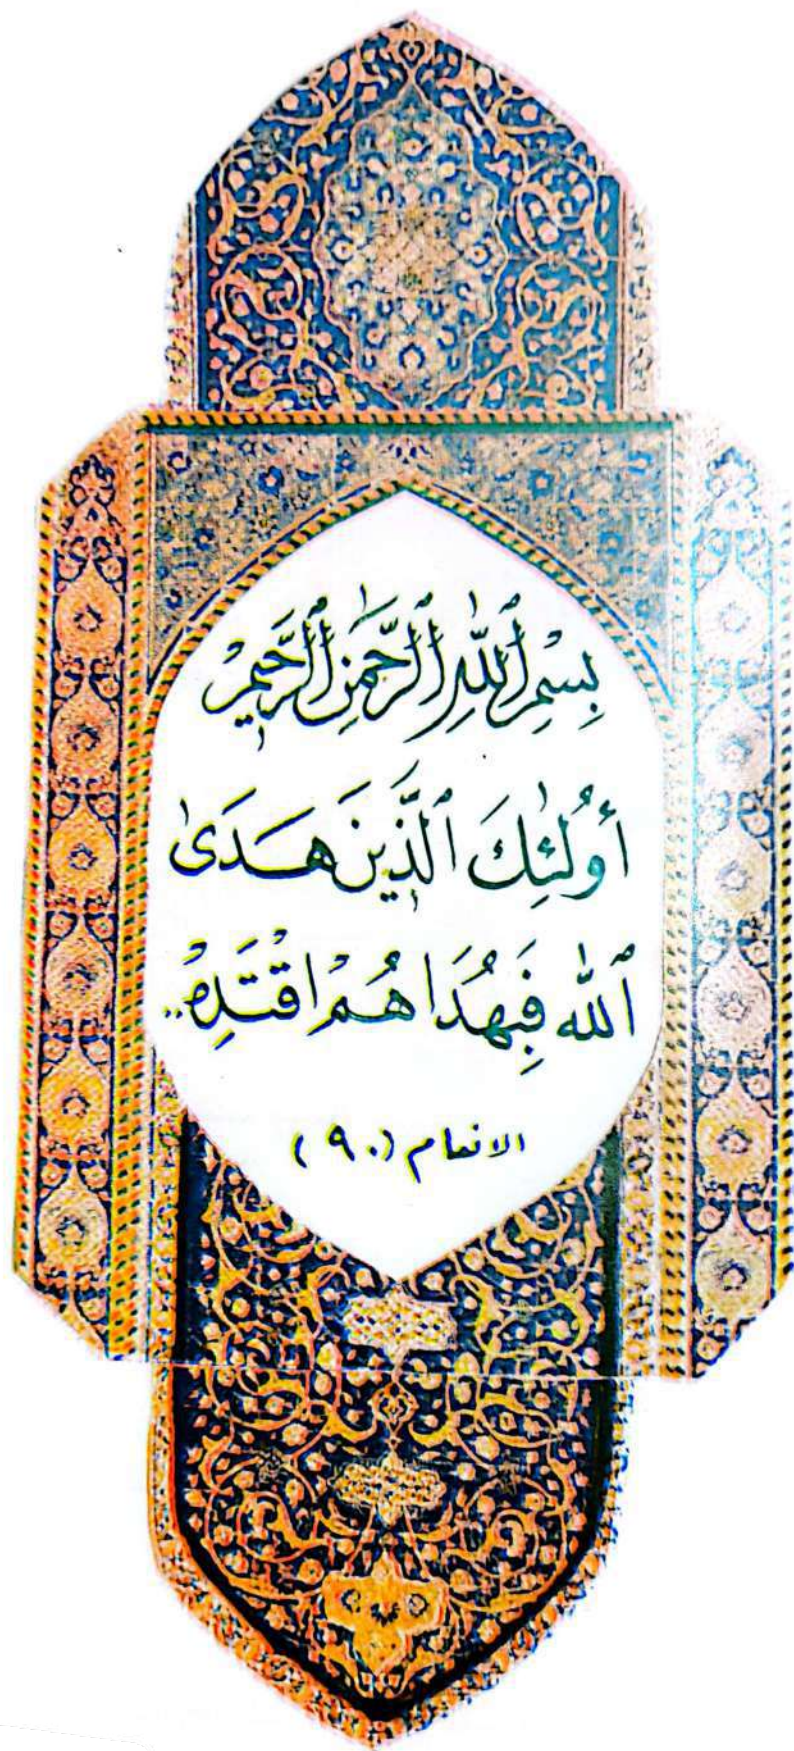 بِسْمِ ٱللَّهِ ٱلرَّحْمَٰنِ ٱلرَّحِيمِ
أُولَٰئِكَ ٱلَّذِينَ هَدَىٰ
ٱللَّه فَبِهُدَاهُمْ اقْتَدِهْ..
الانعام (٩٠)